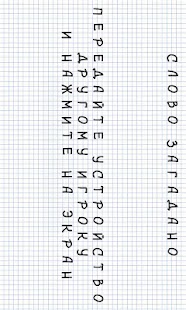 СЛОВО ЗАГАДАНО
ПЕРЕДАЙТЕ УСТРОЙСТВО
ДРУГОМУ ИГРОКУ
И НАЖМИТЕ НА ЭКРАН